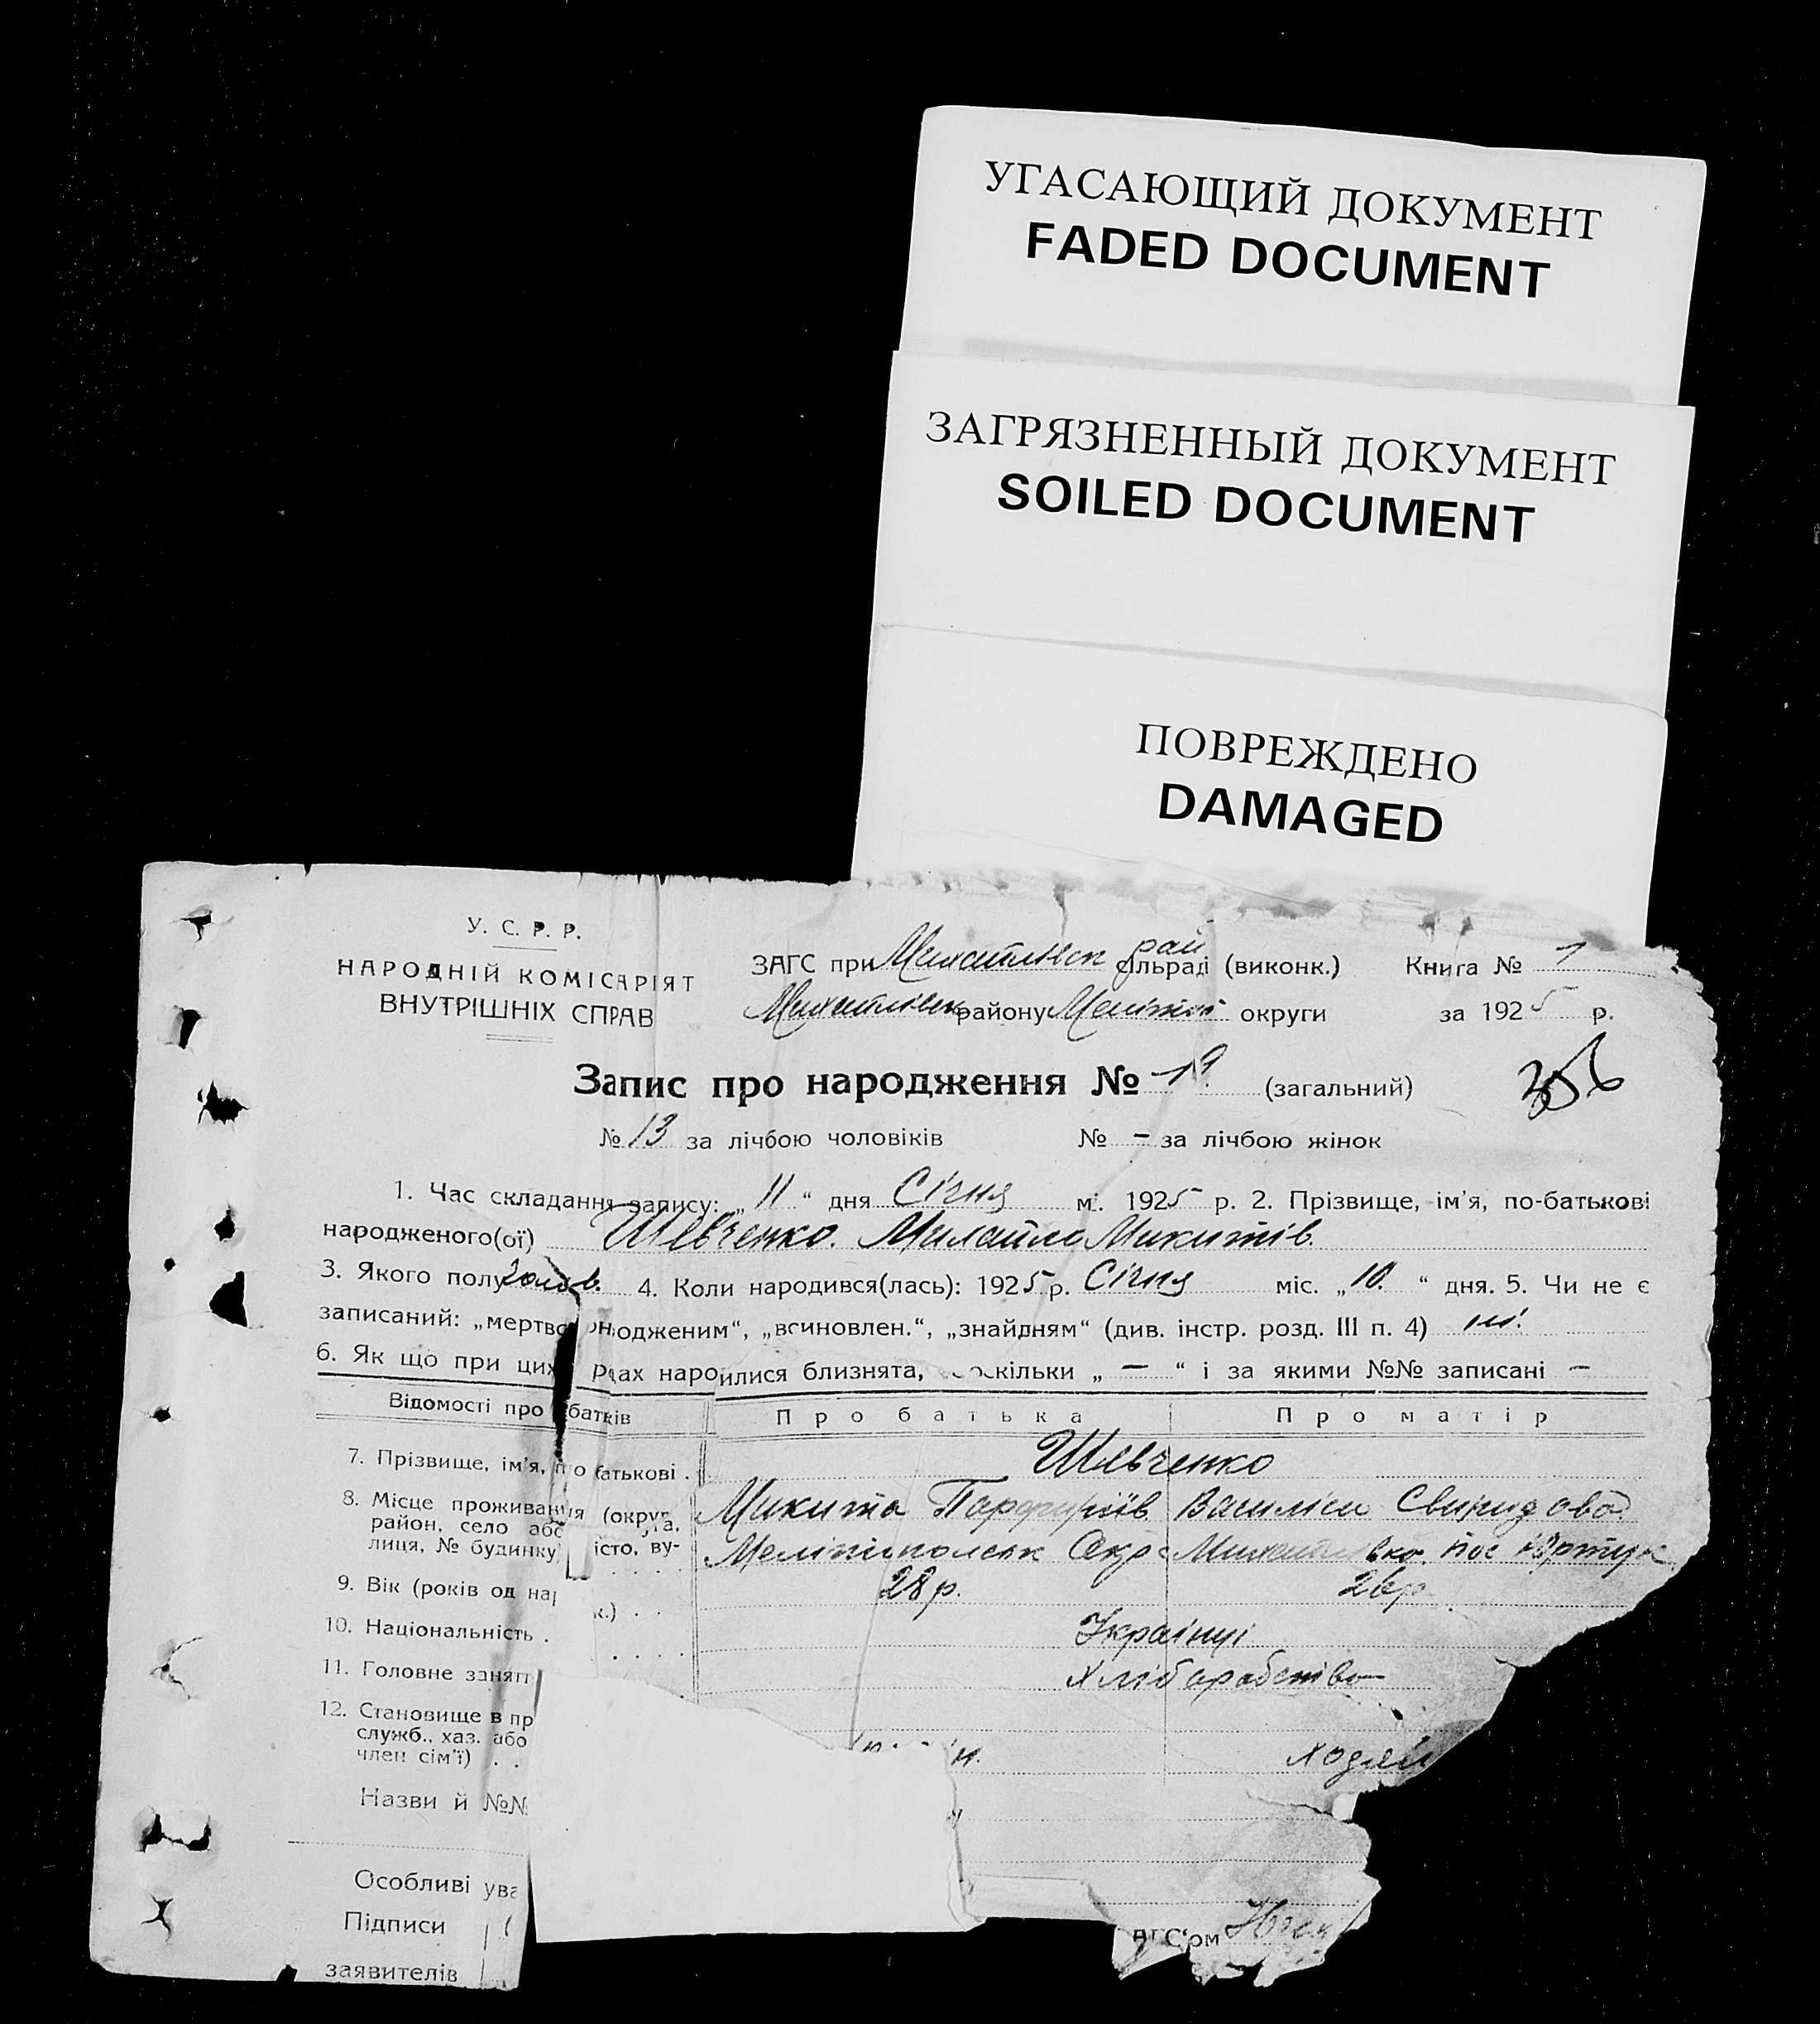 УГАСАЮЩИЙ ДОКУМЕНТ
FADED DOCUMENT
ЗАГРЯЗНЕННЫЙ ДОКУМЕНТ
SOILED DOCUMENT
ПОВРЕЖДЕНО
DAMAGED
У. С. Р. Р.
НАРОДНІЙ КОМІСАРІЯТ
ВНУТРІШНІХ СПРАВ
рай
ЗАГС при Михайлівськ сільраді (виконк.) Книга № 1
Михайлівськ району Мелітоп округи за 1925 р.
Запис про народження № 19 (загальний)
356
№ 13 за лічбою чоловіків № – за лічбою жінок
1. Час складання запису: „ 11 “ дня Січня м. 1925 р. 2. Прізвище, ім’я, по-батькові
народженого(ої) Шевченко. Михайло Микитів.
3. Якого полу 4. Коли народився(лась): 1925 р. Січня міс. „ 10. “ дня. 5. Чи не є
записаний: „мертвонародженим“, „всиновлен.“, „знайдням“ (див. інстр. розд. III п. 4) ні.
6. Як що при цих родах народилися близнята, скільки „ — “ і за якими №№ записані –
Відомості про батьків Про батька Про матір
7. Прізвище, ім’я, по батькові . Шевченко
Микита Парфирїів Василіси Свиридова
8. Місце проживання (округа,
район, село або місто, ву-
лиця, № будинку) Мелітопольськ Окр
9. Вік (років од нар к.) . . 28 р. 26 р.
10. Національність . . . . . . Українці
11. Головне занятт Хліборобство
12. Становище в пр
служб., хаз. або
член сім’ї) . . н. хозяй
Назви й №№
Особливі ува
Підписи
заявителів